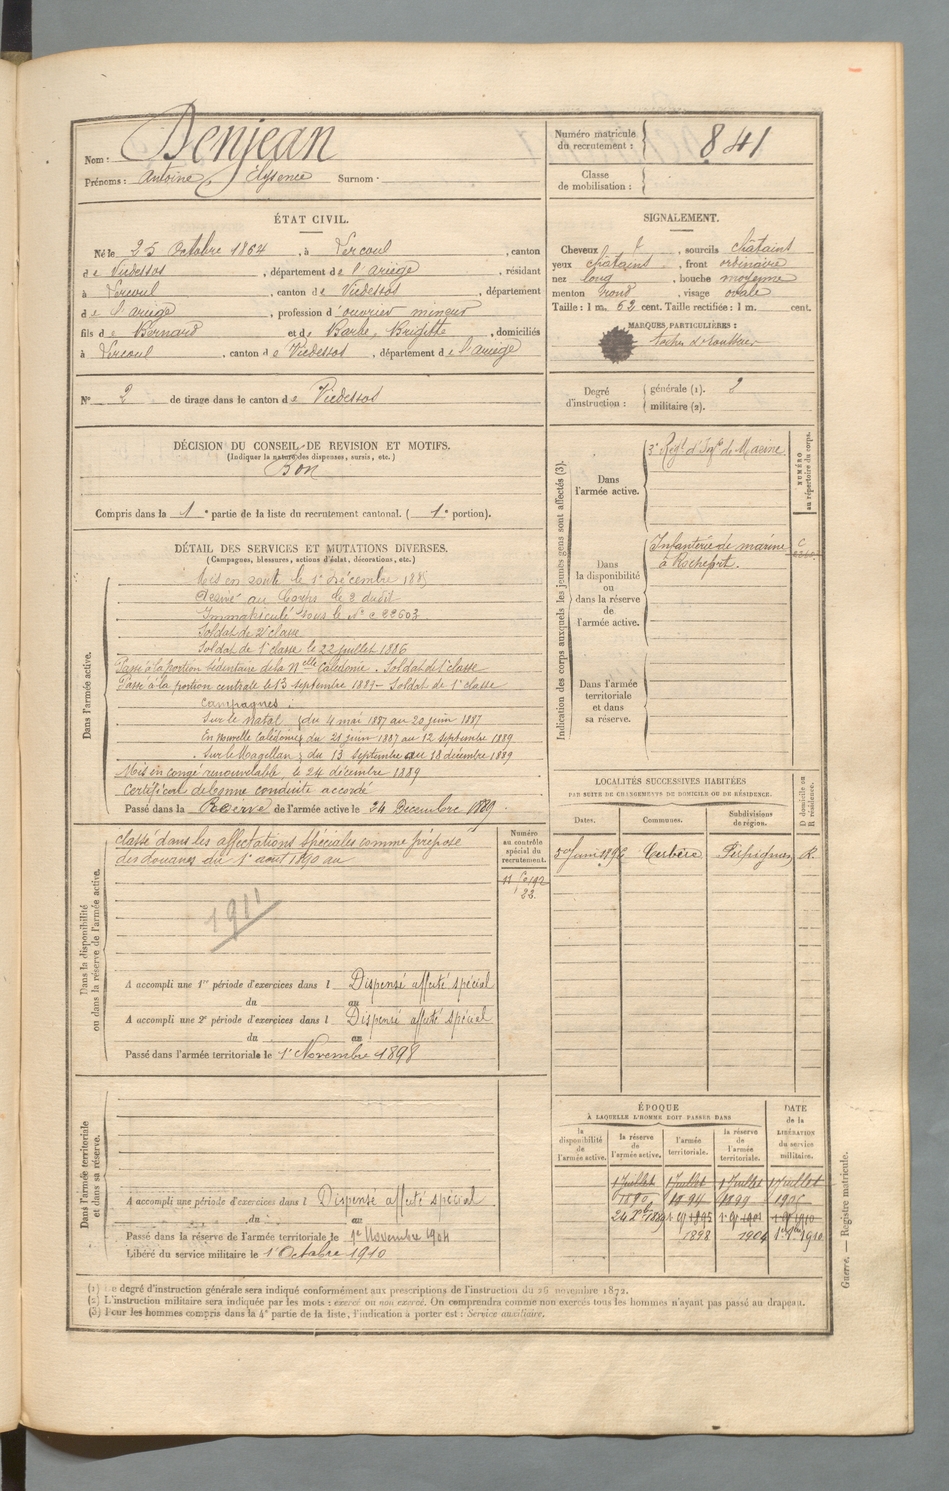 Nom : Denjean
Prénoms : Antoine, Elysence Surnom :
Numéro matricule du recrutement : 841
Classe de mobilisation :
ÉTAT CIVIL.
Né le 25 Octobre 1864, à Lercoul, canton
de Vicdessos, département de l'Ariège, résidant
à Lercoul, canton de Vicdessos, département
de l'Ariège, profession d'ouvrier mineur
fils de Bernard et de Barbe, Brigitte, domiciliés
à Lercoul, canton de Vicdessos, département de l'ariège
SIGNALEMENT.
Cheveux, sourcils châtains
yeux châtains, front ordinaire
nez long, bouche moyenne
menton rond, visage ovale
Taille : 1 m. 62 cent. Taille rectifiée : 1 m. cent.
MARQUES PARTICULIÈRES :
N° 2 de tirage dans le canton de Vicdessos
Degré d'instruction : générale (1). 2
militaire (2).
DÉCISION DU CONSEIL DE REVISION ET MOTIFS.
(Indiquer la nature des dispenses, sursis, etc.)
Bon
Compris dans la 1e partie de la liste du recrutement cantonal. (1e portion).
DÉTAIL DES SERVICES ET MUTATIONS DIVERSES.
(Campagnes, blessures, actions d'éclat, décorations, etc.)
Dans l'armée active.
Mis en route le 1er Décembre 1885
Arrivé au Corps le 2 dudit
Immatriculé sous le N° c 22603.
Soldat de 2e classe
Soldat de 1e classe le 22 juillet 1886
Passé à la portion sédentaire de la Nelle Calédonie. Soldat de 1e classe
Passé à la portion centrale le 13 septembre 1889 - Soldat de 1e classe
Campagnes :
Sur le Natal du 4 mai 1887 au 20 juin 1887
En nouvelle Calédonie du 21 juin 1887 au 12 septembre 1889
Sur le Magellan du 13 septembre au 18 décembre 1889
Mis en congé renouvelable, le 24 décembre 1889
Certificat de bonne conduite accordé
Passé dans la Réserve de l'armée active le 24 Décembre 1889.
Indication des corps auxquels les jeunes gens sont affectés (3).
NUMÉRO au répertoire du corps.
Dans l'armée active.
3e Regt d'Infie de Marine
Dans la disponibilité ou dans la réserve de l'armée active.
Infanterie de marine
à Rochefort.
C
Dans l'armée territoriale et dans sa réserve.
Dans la disponibilité ou dans la réserve de l'armée active.
classé dans les affectations spéciales comme préposé
des douanes du 1er août 1890 au
1911
Numéro au contrôle spécial du recrutement.
A accompli une 1re période d'exercices dans l Dispensé affecté spécial
du au
A accompli une 2e période d'exercices dans l Dispensé affecté spécial
du au
Passé dans l'armée territoriale le 1er Novembre 1898
LOCALITÉS SUCCESSIVES HABITÉES
PAR SUITE DE CHANGEMENTS DE DOMICILE OU DE RÉSIDENCE.
D domicile ou R résidence.
Dates. Communes. Subdivisions de région.
Cerbère Perpignan R.
Dans l'armée territoriale et dans sa réserve.
A accompli une période d'exercices dans l Dispensé affecté spécial
du au
Passé dans la réserve de l'armée territoriale le 1er Novembre 1904
Libéré du service militaire le 1er Octobre 1910
ÉPOQUE
À LAQUELLE L'HOMME DOIT PASSER DANS
DATE de la LIBÉRATION du service militaire.
la disponibilité de l'armée active. la réserve de l'armée active. l'armée territoriale. la réserve de l'armée territoriale.
1 Juillet 1 Juillet 1 Juillet 1 Juillet
1890 1894 1899 1905
1898 1904
(1) Le degré d'instruction générale sera indiqué conformément aux prescriptions de l'instruction du 26 novembre 1872.
(2) L'instruction militaire sera indiquée par les mots : exercé ou non exercé. On comprendra comme non exercés tous les hommes n'ayant pas passé au drapeau.
(3) Pour les hommes compris dans la 4e partie de la liste, l'indication à porter est : Service auxiliaire.
Guerre. — Registre matricule.